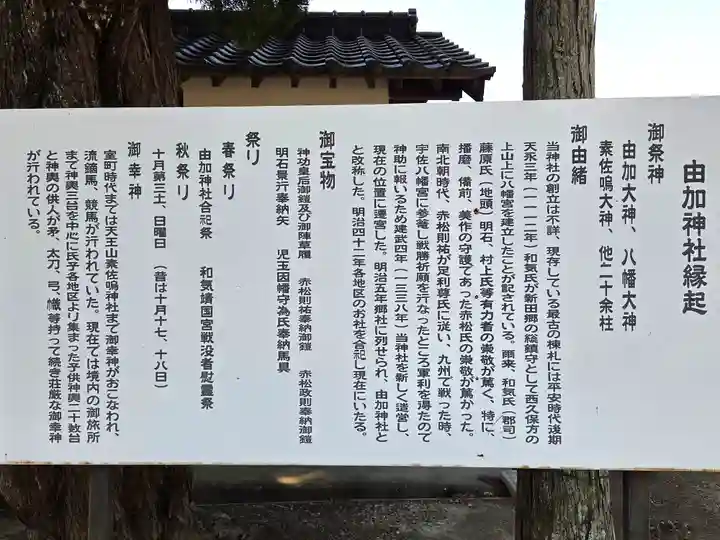 由加神社縁起
御祭神
由加大神、八幡大神
素佐嗚大神、他二十余柱
御由緒
当神社の創立は不詳、現存している最古の棟札には平安時代後期
天永三年(一一一二年)和気氏が新田郷の総鎮守として西久保方の
上山上に八幡宮を建立したことが記されている。爾来、和気氏(郡司)
藤原氏(地頭)明石、村上氏等有力者の崇敬が篤く、特に、
播磨、備前、美作の守護であった赤松氏の崇敬が篤かった。
南北朝時代、赤松則祐が足利尊氏に従い、九州で戦った時、
宇佐八幡宮に参篭し戦勝祈願を行なったところ軍利を得たので
神助に報いるため建武四年(一三三八年)当神社を新しく造営し、
現在の位置に遷宮した。明治五年郷社に列せられ、由加神社と
と改称した。明治四十二年各地区のお社を合祀し現在にいたる。
御宝物
神功皇后御鎧及び御陣草履 赤松則祐奉納御鎧 赤松政則奉納御鎧
明石景行奉納矢 児玉因幡守為氏奉納馬具
祭り
春祭り
由加神社合祀祭 和気靖国宮戦没者慰霊祭
秋祭り
十月第三土、日曜日 (昔は十月十七、十八日)
御幸神
室町時代までは天王山素佐嗚神社まで御幸神がおこなわれ、
流鏑馬、競馬が行われていた。現在では境内の御旅所
まで神輿三台を中心に氏子各地区より集まった子供神輿二十数台
と神輿の供人が矛、太刀、弓、幟等持って続き荘厳な御幸神
が行われている。